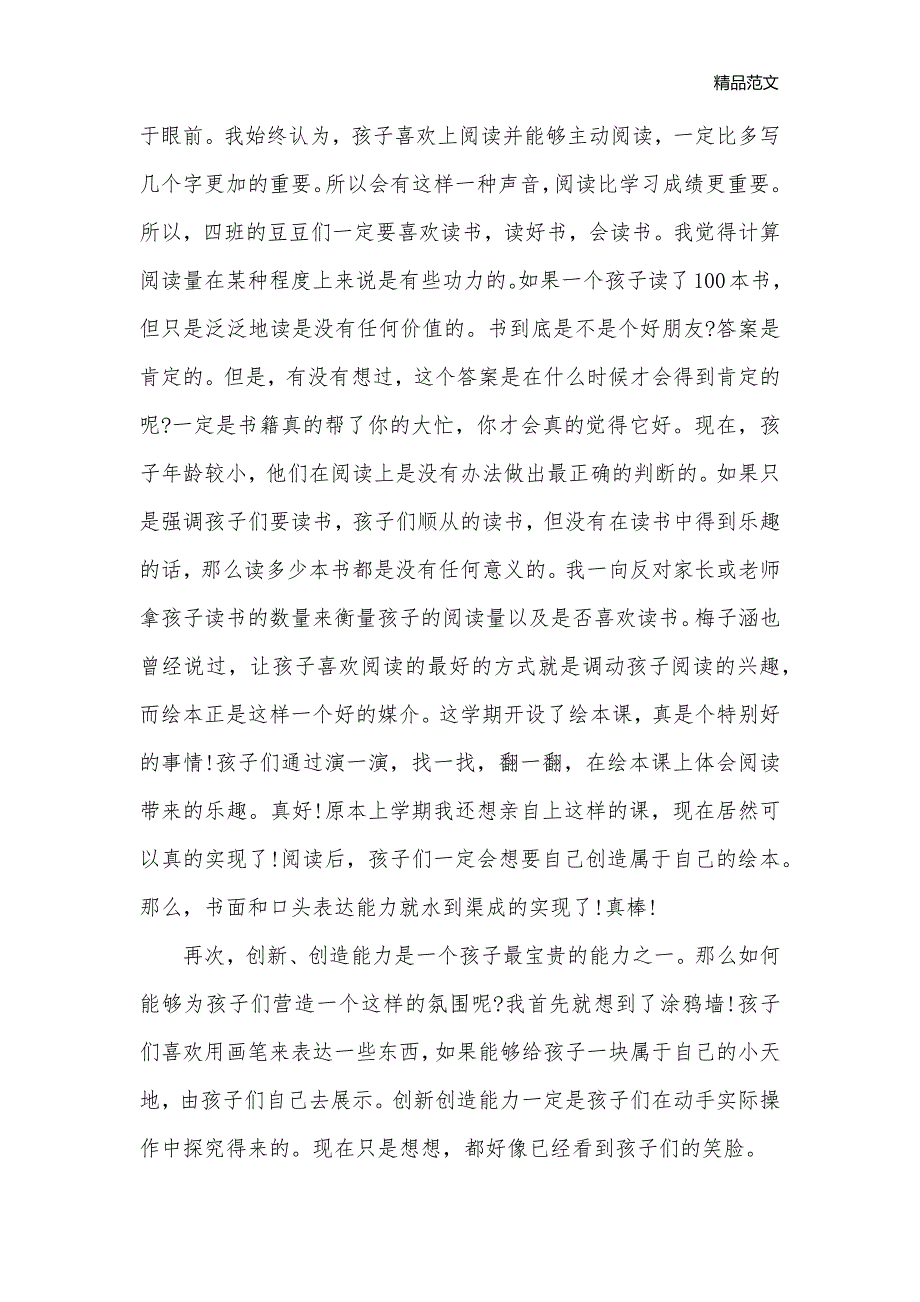 精品范文
于眼前。我始终认为，孩子喜欢上阅读并能够主动阅读，一定比多写
几个字更加的重要。所以会有这样一种声音,阅读比学习成绩更重要。
所以，四班的豆豆们一定要喜欢读书，读好书，会读书。我觉得计算
阅读量在某种程度上来说是有些功力的。如果一个孩子读了100本书，
但只是泛泛地读是没有任何价值的。书到底是不是个好朋友?答案是
肯定的。但是，有没有想过，这个答案是在什么时候才会得到肯定的
呢?一定是书籍真的帮了你的大忙，你才会真的觉得它好。现在，孩
子年龄较小，他们在阅读上是没有办法做出最正确的判断的。如果只
是强调孩子们要读书，孩子们顺从的读书，但没有在读书中得到乐趣
的话，那么读多少本书都是没有任何意义的。我一向反对家长或老师
拿孩子读书的数量来衡量孩子的阅读量以及是否喜欢读书。梅子涵也
曾经说过，让孩子喜欢阅读的最好的方式就是调动孩子阅读的兴趣，
而绘本正是这样一个好的媒介。这学期开设了绘本课，真是个特别好
的事情!孩子们通过演一演，找一找，翻一翻，在绘本课上体会阅读
带来的乐趣。真好!原本上学期我还想亲自上这样的课，现在居然可
以真的实现了!阅读后，孩子们一定会想要自己创造属于自己的绘本。
那么，书面和口头表达能力就水到渠成的实现了!真棒!
再次，创新、创造能力是一个孩子最宝贵的能力之一。那么如何
能够为孩子们营造一个这样的氛围呢?我首先就想到了涂鸦墙!孩子
们喜欢用画笔来表达一些东西,如果能够给孩子一块属于自己的小天
地，由孩子们自己去展示。创新创造能力一定是孩子们在动手实际操
作中探究得来的。现在只是想想，都好像已经看到孩子们的笑脸。